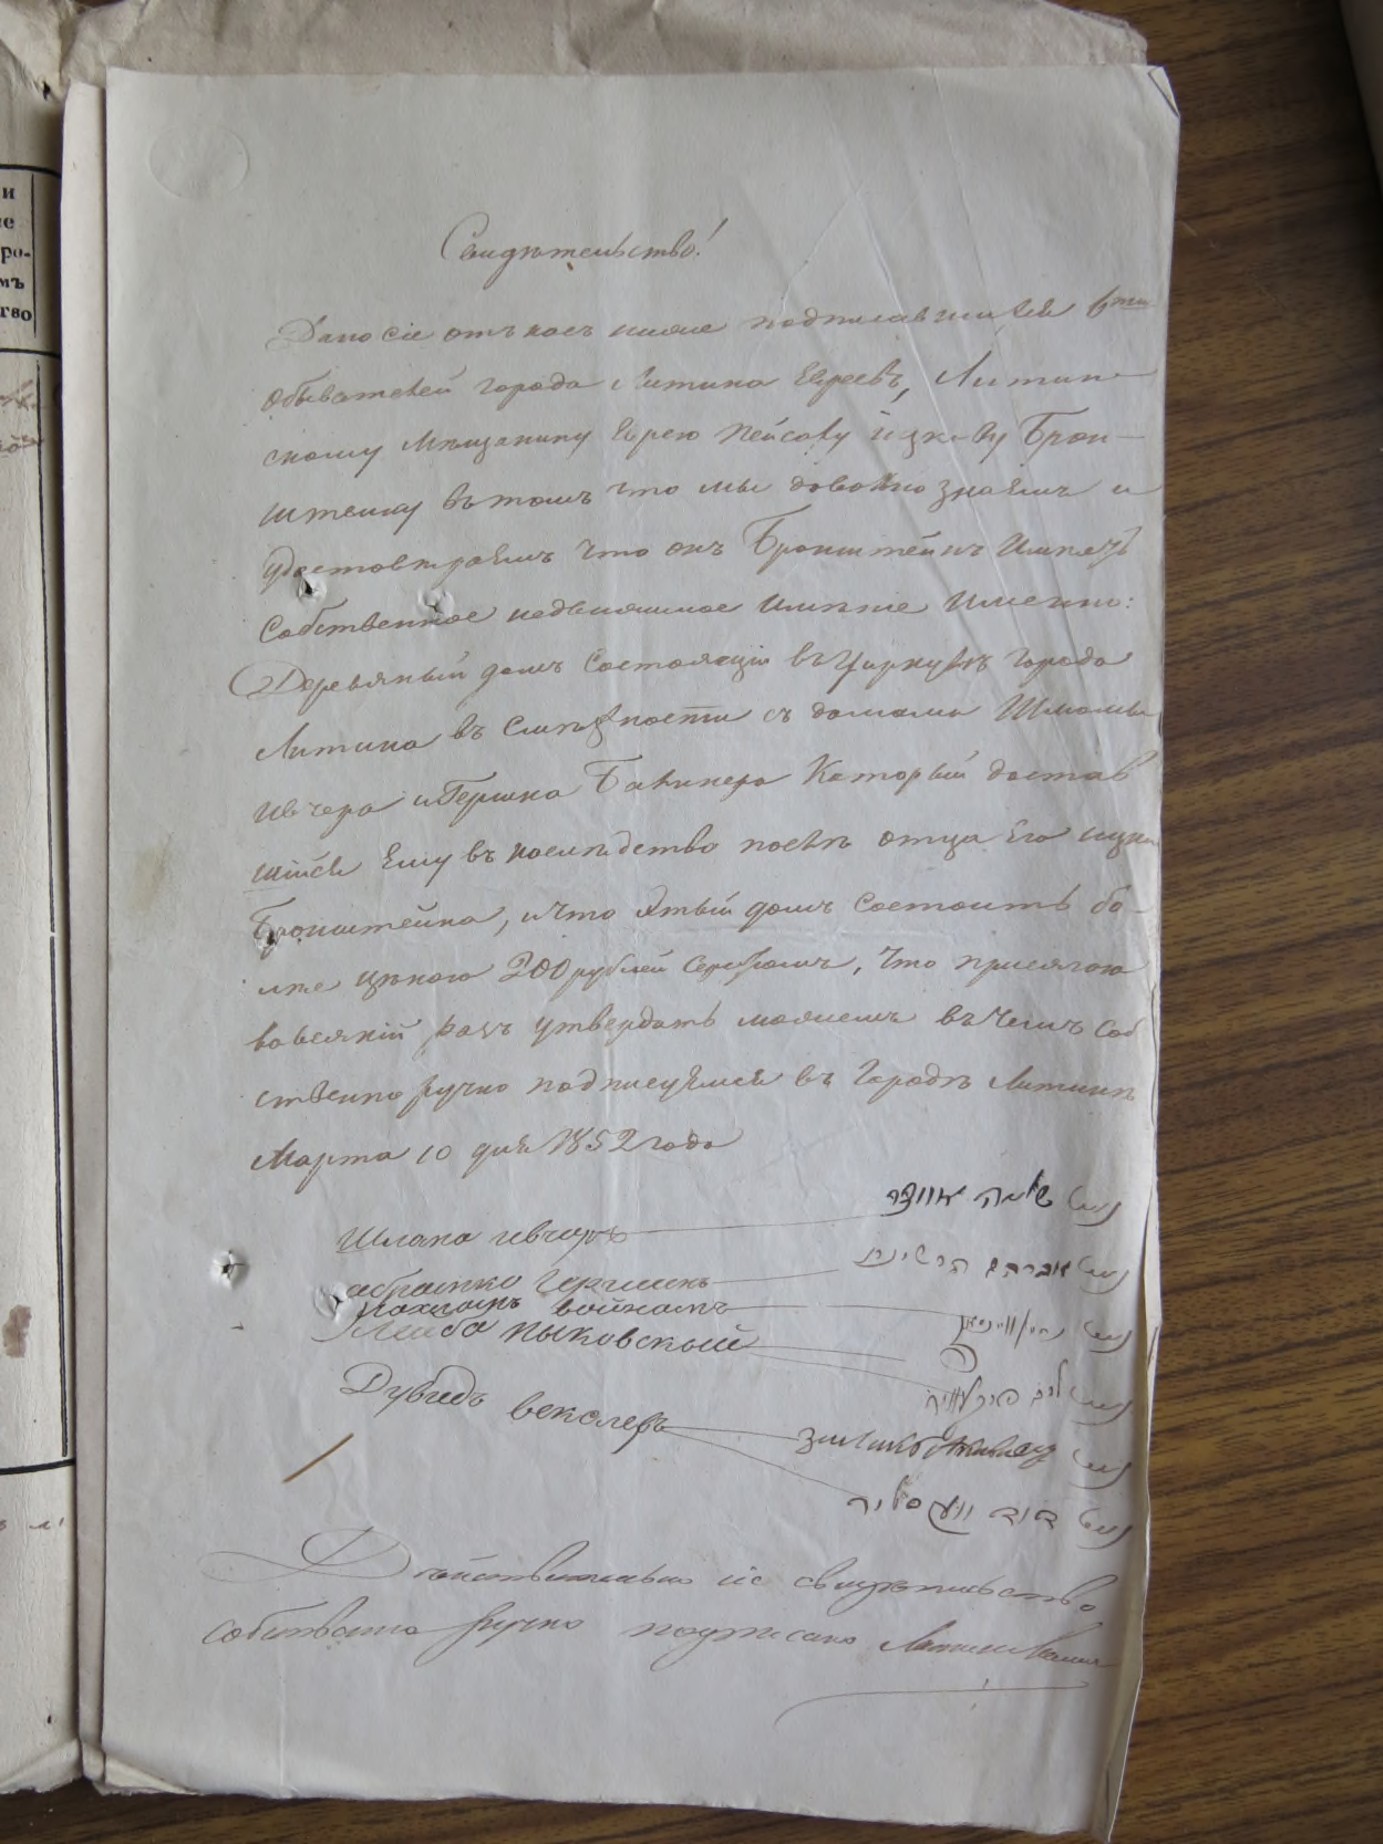 и
ро-
мъ
тво
Свидѣтельство!
Дано сіе отъ насъ ниже подписавшихся 6ти
обывателей города Литина Евреевъ, Литин-
скому Мѣщанину Еврею Пейсаху Ицкову Брон-
штейну въ томъ что мы довольно знаемъ и
удостовѣряемъ что онъ Бронштейнъ Имѣетъ
Собственное недвижимое Имѣніе Именно:
Деревяный домъ Состоящій въ Циркулѣ города
Литина въ Смѣжности съ домами Шломы
Ивчера и Гершка Который достав
шійся Ему въ наслѣдство послѣ отца Его Ицка
Бронштейна, и что Этый домъ Состоитъ бо-
лѣе цѣною 200 рублей Серебромъ, Что присягою
во всякій разъ утвердить можемъ въ Чемъ Соб
ственно ручно подписуемся въ Городѣ Литинѣ
Марта 10 дня 1852 года
נאום שלמה
Шлома Ивчеръ
נאום אברהם הרשינק
абрамко Гершинкъ
נאום
Лейба пыковскый
נאום ליב
Дувидъ векслеръ
נאום
נאום דוד וועקסליר
Дѣйствительно сіе свидѣтельство
собственно ручно подписано